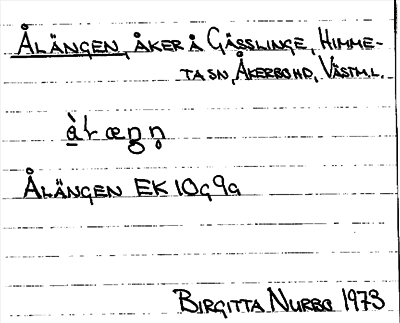 ÅLÄNGEN, ÅKER Å GÄSSLINGE, HIMME-
TA SN, ÅKERBO HD, VÄSTML.
ÅLÄNGEN EK 10g 9a
BIRGITTA NURBO 1973